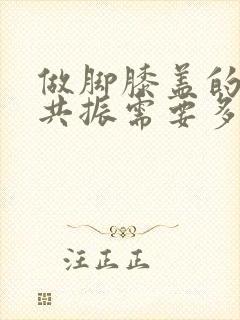 做脚膝盖的
共振需要多
汪正正